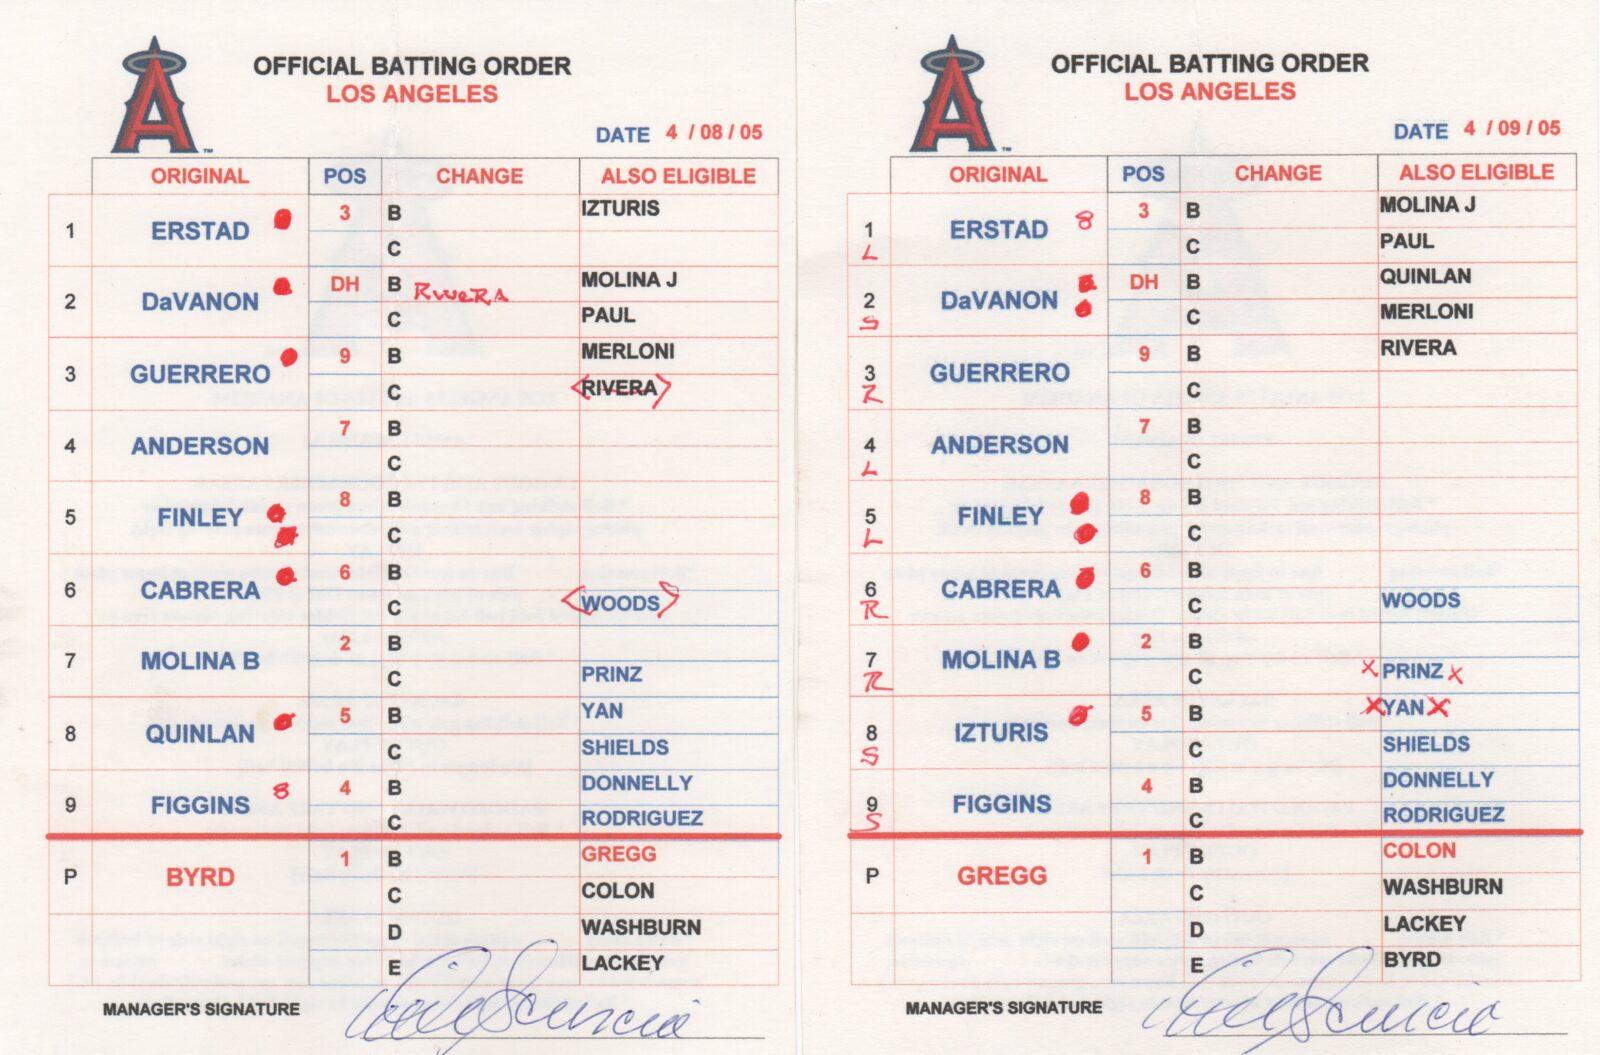 OFFICIAL BATTING ORDER
LOS ANGELES
DATE 4 / 08 / 05
ORIGINAL POS CHANGE ALSO ELIGIBLE
1 ERSTAD 3 B IZTURIS
C
2 DaVANON DH B RIVERA MOLINA J
C PAUL
3 GUERRERO 9 B MERLONI
C RIVERA
4 ANDERSON 7 B
C
5 FINLEY 8 B
C
6 CABRERA 6 B
C WOODS
7 MOLINA B 2 B
C PRINZ
8 QUINLAN 5 B YAN
C SHIELDS
9 FIGGINS 8 4 B DONNELLY
C RODRIGUEZ
P BYRD 1 B GREGG
C COLON
D WASHBURN
E LACKEY
MANAGER'S SIGNATURE
A
™
OFFICIAL BATTING ORDER
LOS ANGELES
DATE 4 / 09 / 05
ORIGINAL POS CHANGE ALSO ELIGIBLE
1 L ERSTAD 8 3 B MOLINA J
C PAUL
2 S DaVANON DH B QUINLAN
C MERLONI
3 R GUERRERO 9 B RIVERA
C
4 L ANDERSON 7 B
C
5 L FINLEY 8 B
C
6 R CABRERA 6 B
C WOODS
7 R MOLINA B 2 B
C X PRINZ X
8 S IZTURIS 5 B X YAN X
C SHIELDS
9 S FIGGINS 4 B DONNELLY
C RODRIGUEZ
P GREGG 1 B COLON
C WASHBURN
D LACKEY
E BYRD
MANAGER'S SIGNATURE
A
™